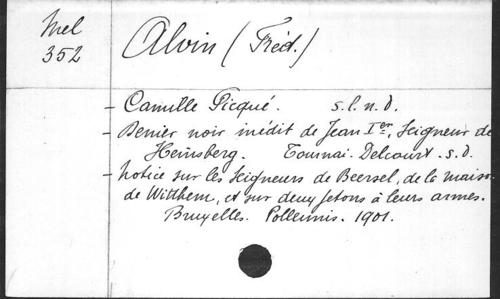 Mel
352
Alvin (Fréd.)
- Camille Picqué. s.l.n.d.
- Denier noir inédit de Jean Ier, Seigneur de
Heinsberg. Tournai. Delcourt. s.d.
- Notice sur les Seigneurs de Beersel, de la maison
de Witthem, et sur deux jetons à leurs armes.
Bruxelles. Polleunis. 1901.